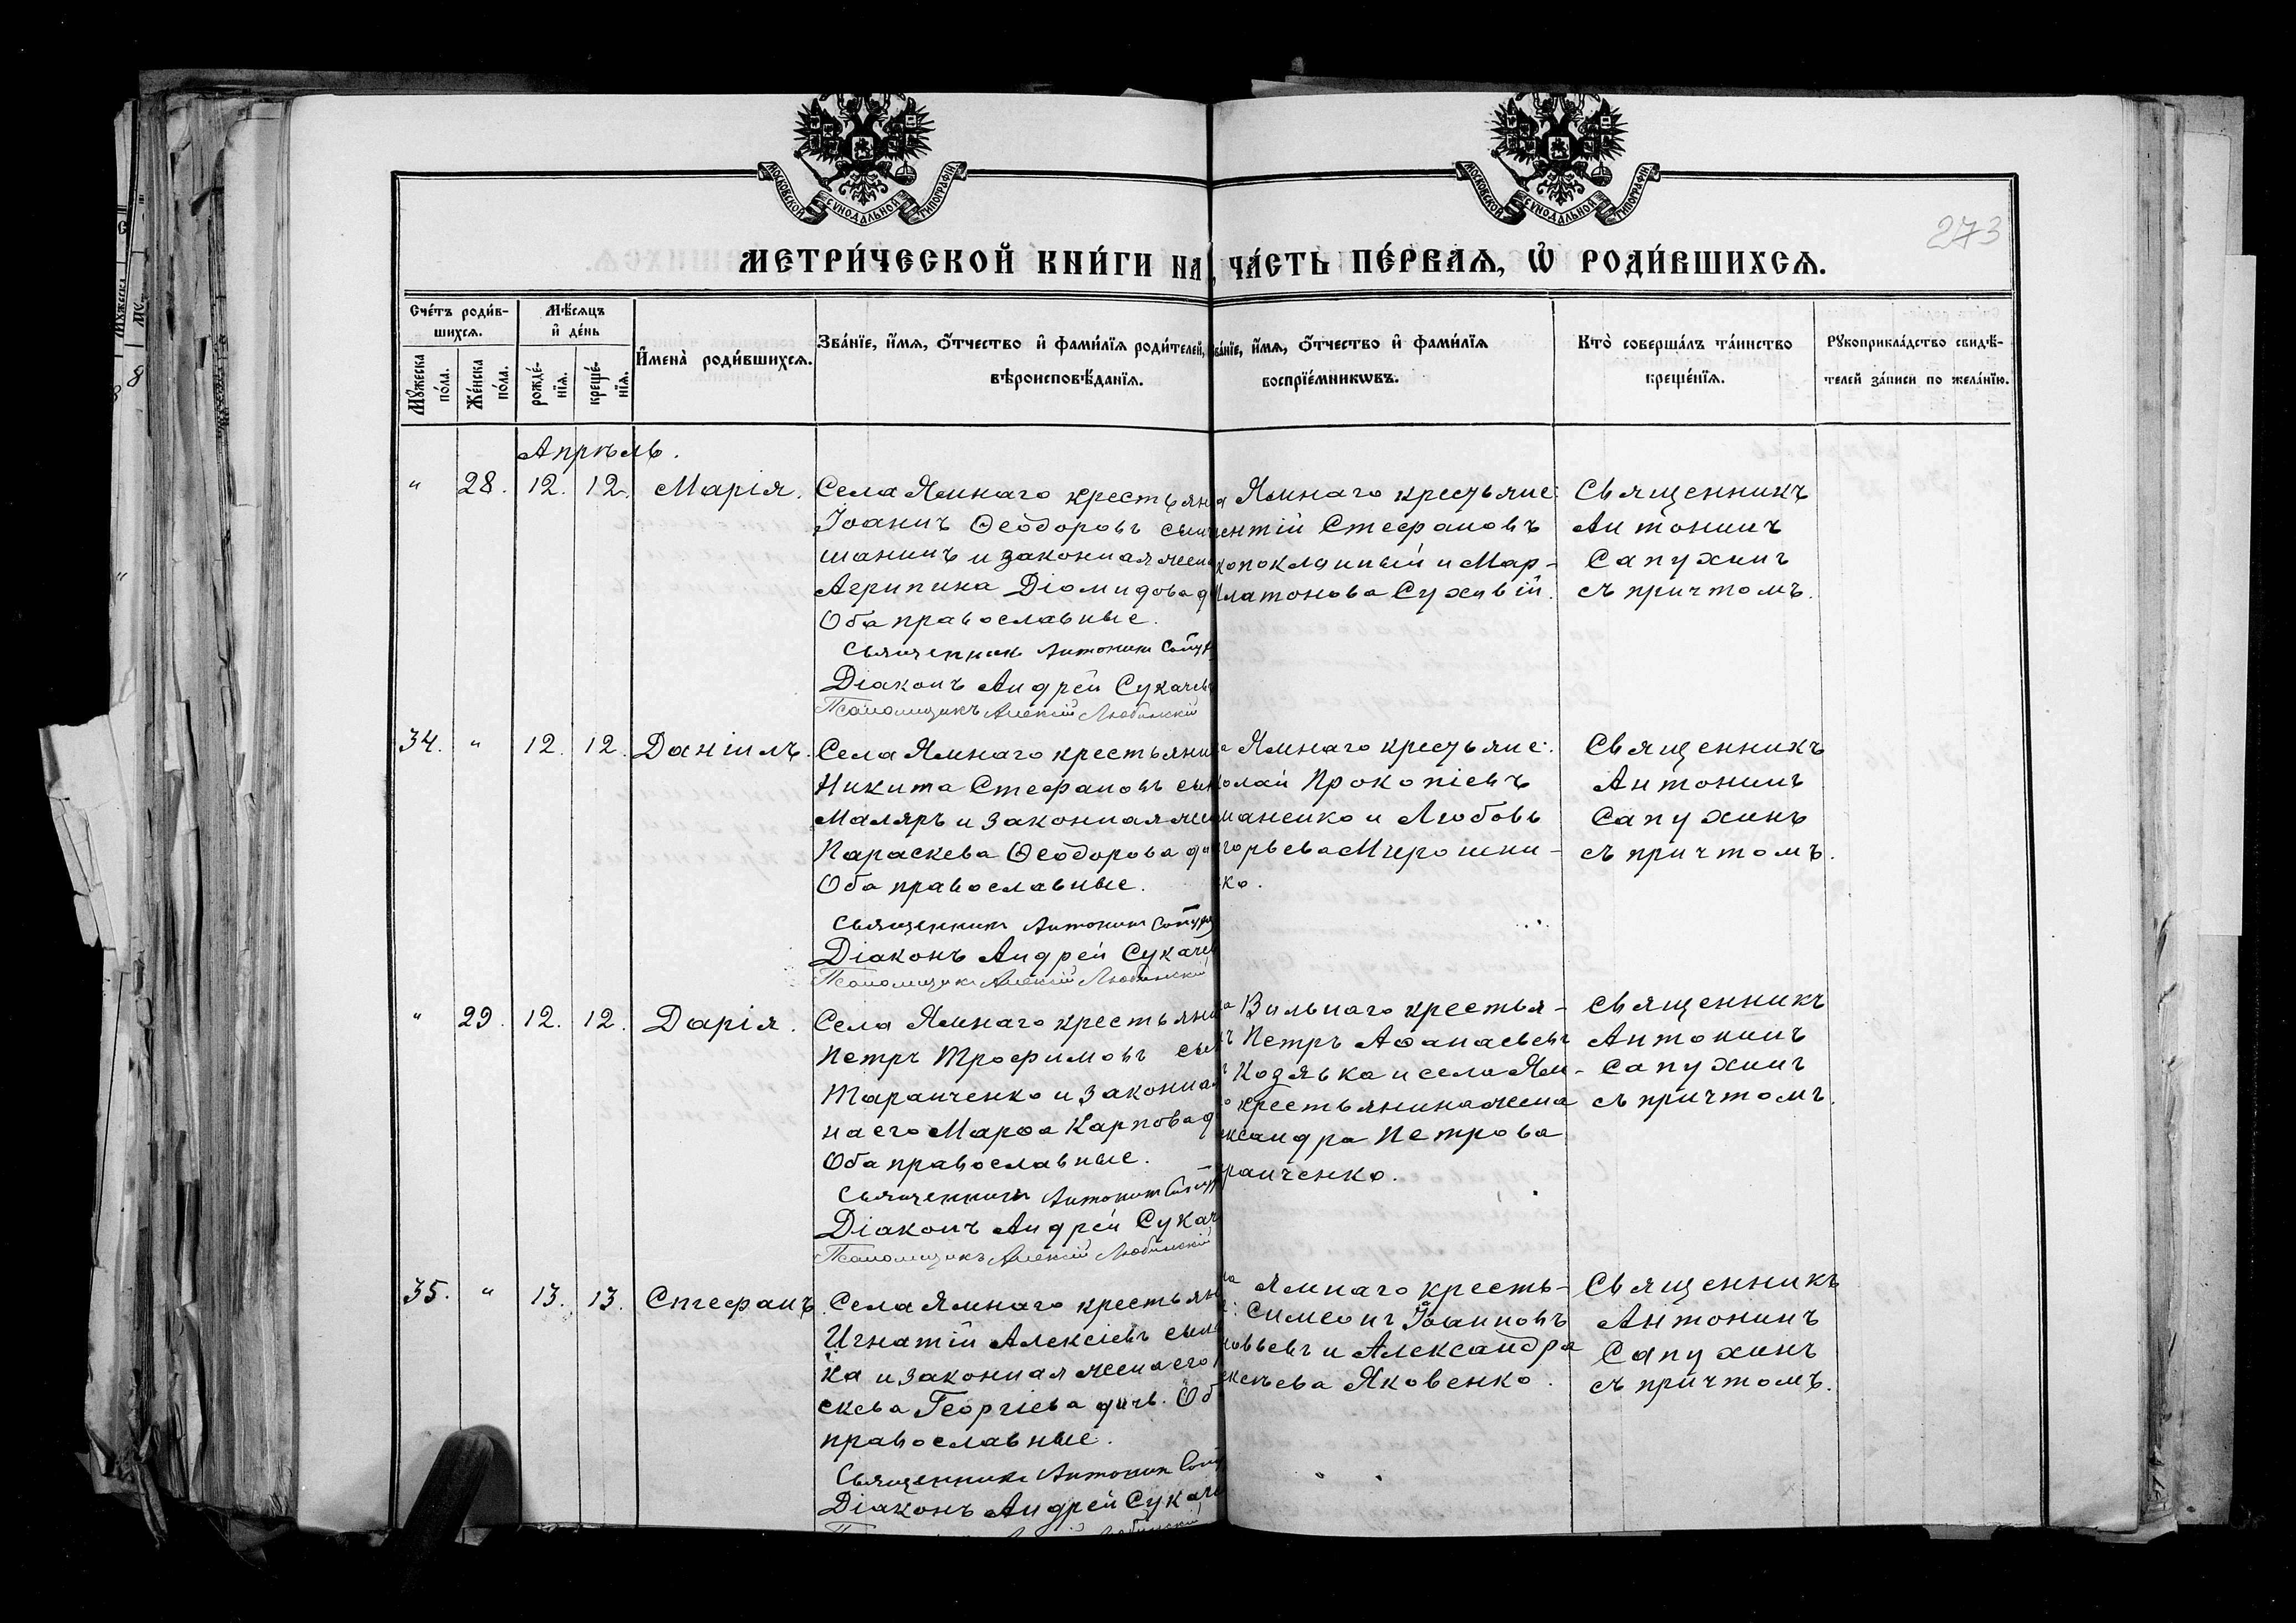 МОСКОВСКОЙ СѴНОДАЛЬНОЙ ТИПОГРАФІИ
МОСКОВСКОЙ СѴНОДАЛЬНОЙ ТИПОГРАФІИ
273
МЕТРИ́ЧЕСКОЙ КНИ́ГИ НА
ЧА́СТЬ ПЕ́РВАЯ, Ѿ РОДИ́ВШИХСЯ.
Сче́тъ роди́в-
шихся.
Мꙋ́жеска по́ла.
Же́нска по́ла.
Мѣ́сяцъ
и҆ де́нь
рожде́-
нїя.
креще́-
нїя.
И҆мена̀ роди́вшихся.
Зва́нїе, и҆́мя, ѻ҆́тчество и҆ фами́лїя роди́телей,
вѣроисповѣ́данїя.
Зва́нїе, и҆́мя, ѻ҆́тчество и҆ фами́лїя
воспрїе́мникѡвъ.
Кто̀ соверша́лъ та́инство
креще́нїя.
Рꙋкоприкла́дство свидѣ́-
телей за́писи по жела́нїю.
Апрѣль.
„ 28. 12. 12. Марія.
Села Ямнаго крестьян
Іоаннъ Ѳеодоровъ сын
шанинъ и законная жена
Агрипина Діомидова д
Оба православные.
Священникъ Антонинъ Сапух
Діаконъ Андрей Сукачев
Псаломщикъ Алексій Любинскій
Ямнаго крестьяне:
ентій Стефановъ
копоклянный и Мар-
Платонова Сухивій.
Священникъ
Антонинъ
Сапухинъ
съ причтомъ.
34. „ 12. 12. Даніилъ.
Села Ямнаго крестьяни
Никита Стефановъ сын
Маляръ и законная жен
Параскева Ѳеодорова д
Оба православные.
Священникъ Антонинъ Сапух
Діаконъ Андрей Сукаче
Псаломщикъ Алексій Любинскій
Ямнаго крестьяне:
колай Прокопіевъ
маненко и Любовь
горьева Мирошни-
ко.
Священникъ
Антонинъ
Сапухинъ
съ причтомъ.
„ 29. 12. 12. Дарія.
Села Ямнаго крестьяни
Петръ Трофимовъ сын
Таранченко и законная
на его Марѳа Карпова д
Оба православные.
Священникъ Антонинъ Сапух
Діаконъ Андрей Сукач
Псаломщикъ Алексій Любинскій
Вильнаго крестья-
Петръ Аѳанасьевъ
Козявка и села Ям-
крестьянина жена
ександра Петрова
ранченко.
Священникъ
Антонинъ
Сапухинъ
съ причтомъ.
35. „ 13. 13. Стефанъ.
Села Ямнаго крестьян
Игнатій Алексіевъ сын
ка и законная жена его
скева Георгіева дочь. Об
православные.
Священникъ Антонинъ Сапу
Діаконъ Андрей Сукаче
Ямнаго кресть-
Симеонъ Іоанновъ
ловьевъ и Александра
ексѣева Яковенко.
Священникъ
Антонинъ
Сапухинъ
съ причтомъ.